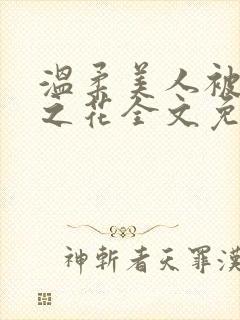 温柔美人被
之花全文免
神斩者天罪漢